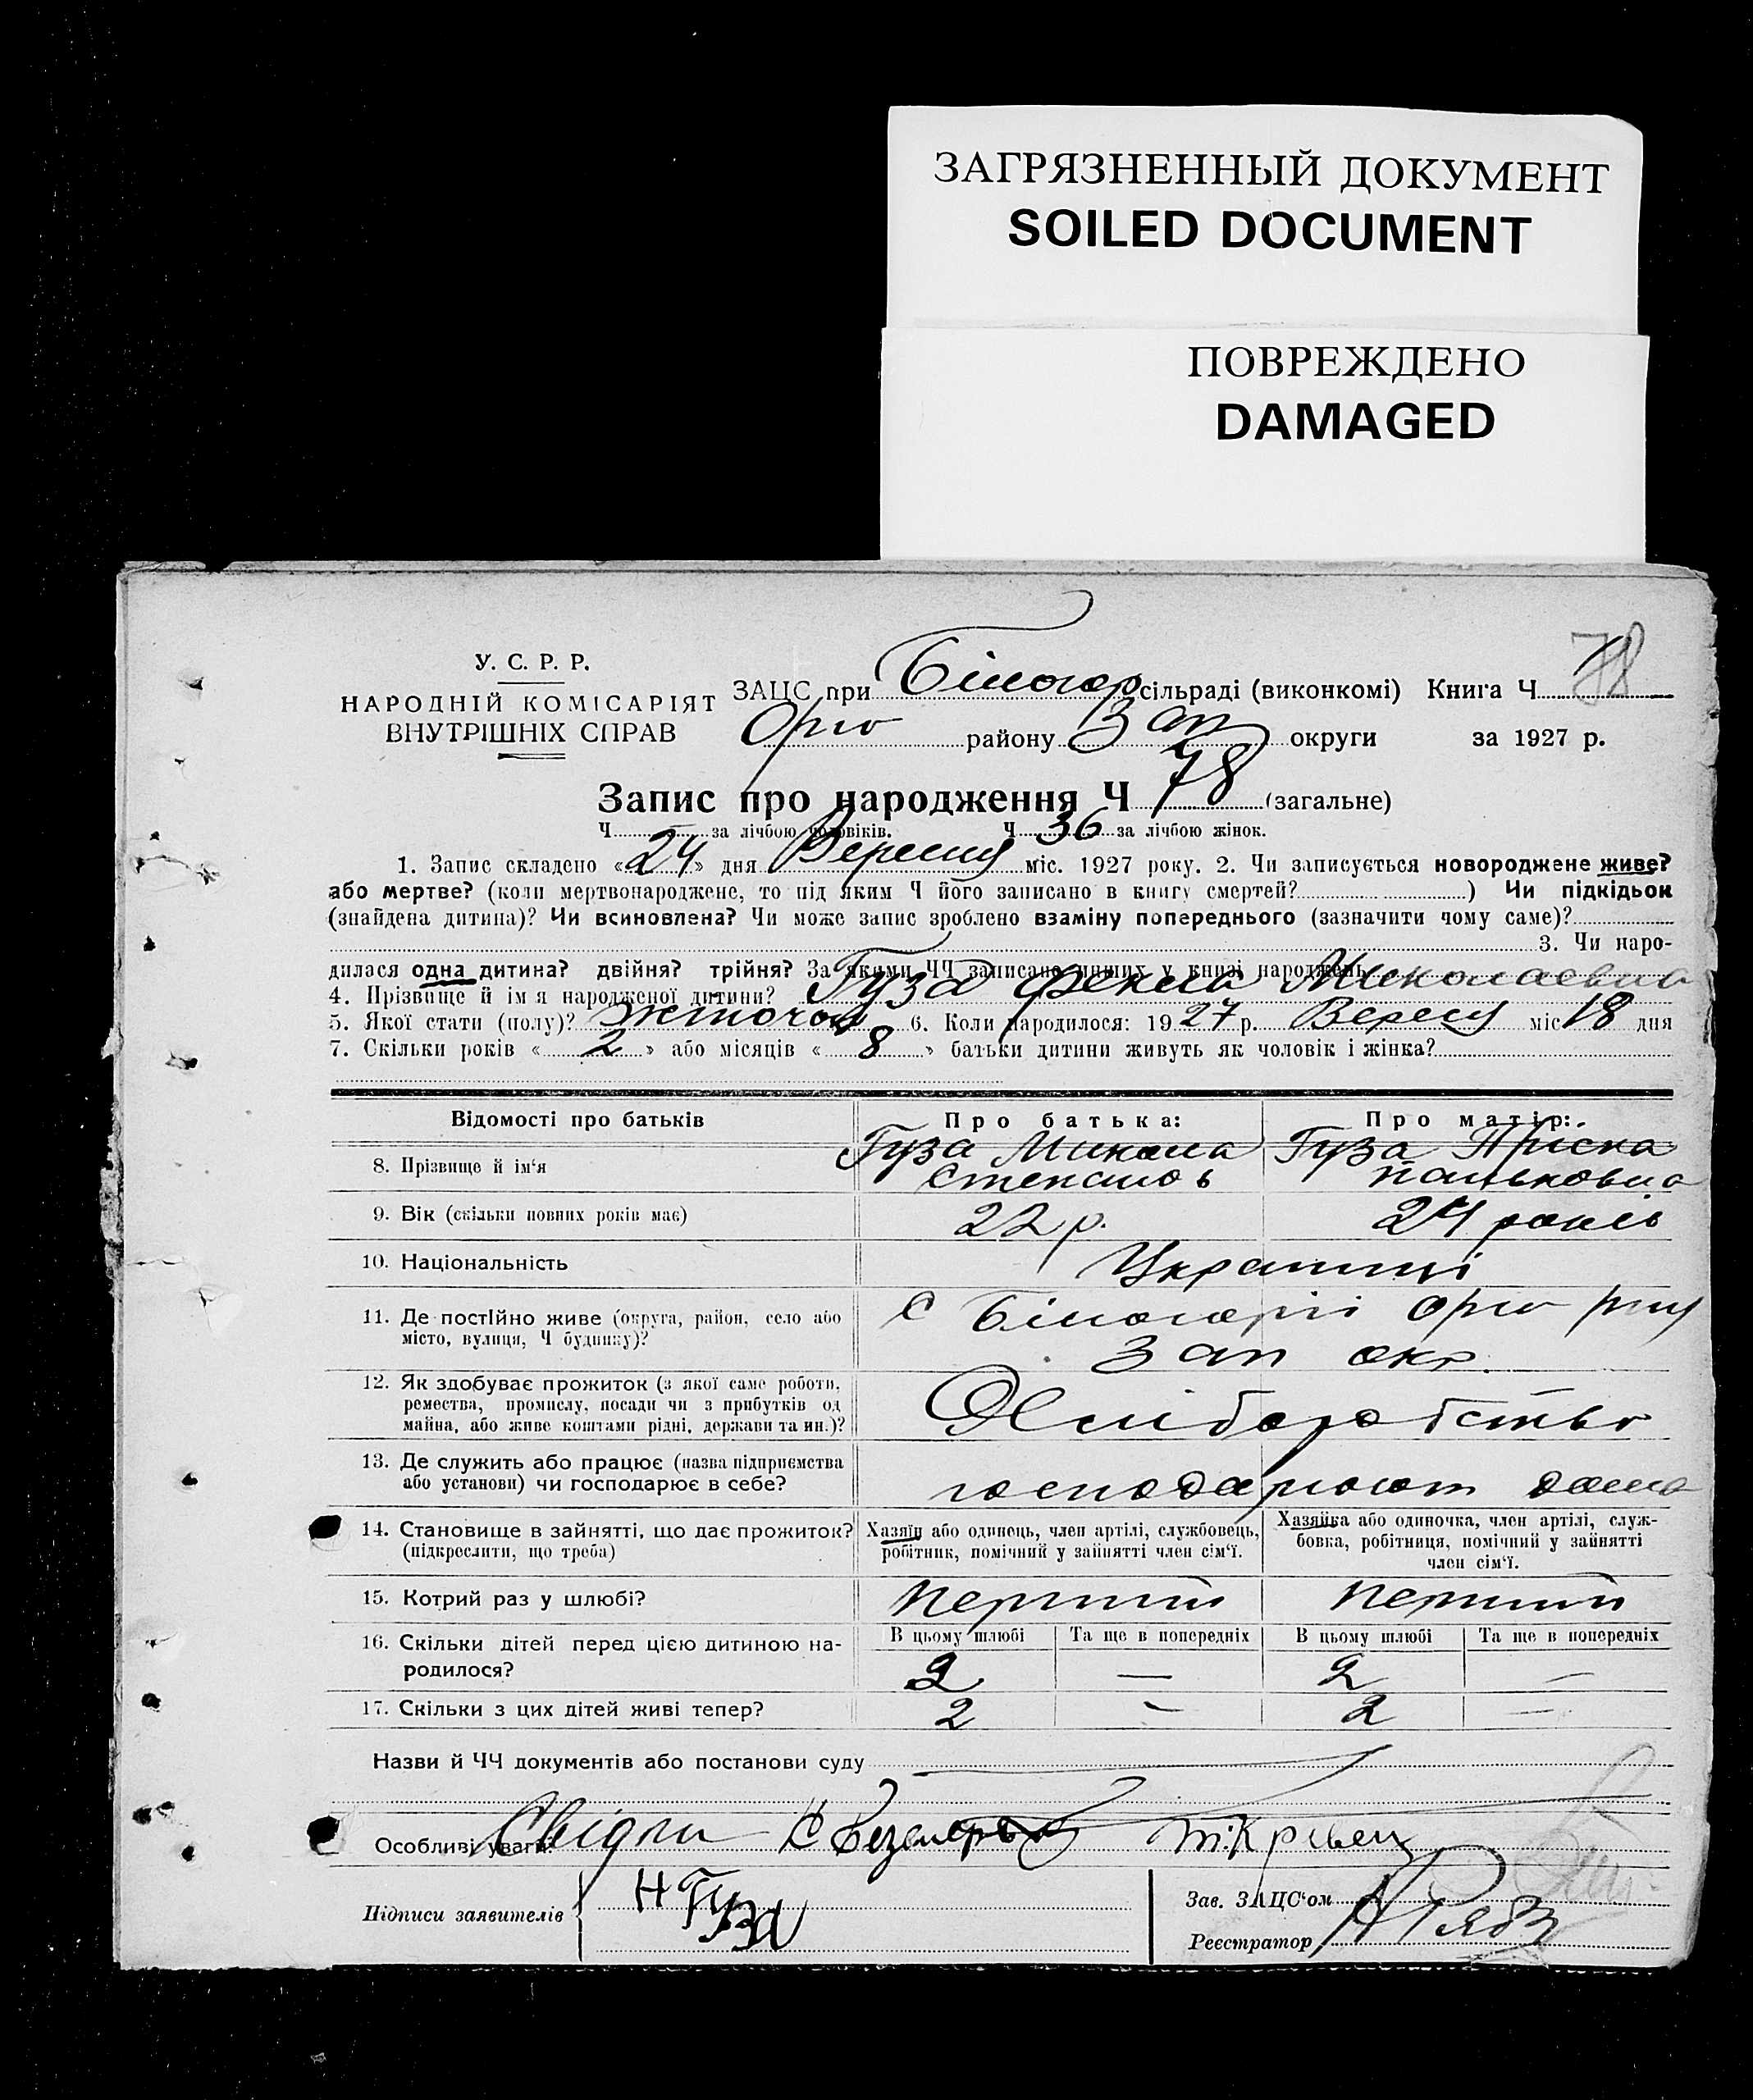 ЗАГРЯЗНЕННЫЙ ДОКУМЕНТ
SOILED DOCUMENT
ПОВРЕЖДЕНО
DAMAGED
У. С. Р. Р.
НАРОДНІЙ КОМІСАРІЯТ
ВНУТРІШНІХ СПРАВ
ЗАЦС при Білогор сільраді (виконкомі) Книга Ч. 78
Оріх району Зап округи за 1927 р.
Запис про народження Ч 78 (загальне)
Ч. за лічбою чоловіків. Ч. 36 за лічбою жінок.
1. Запис складено «24» дня Вересня міс. 1927 року. 2. Чи записується новороджене живе?
або мертве? (коли мертвонароджене, то під яким Ч його записано в книгу смертей? ) Чи підкідьок
(знайдена дитина)? Чи всиновлена? Чи може запис зроблено взаміну попереднього (зазначити чому саме)?
3. Чи наро-
дилася одна дитина? двійня? трійня? За якими ЧЧ записано инших у книзі народжень
4. Прізвище й ім'я народженої дитини? Гуза Фекла Миколаевна
5. Якої стати (полу)? Жіночого 6. Коли народилося: 1927 р. Вересня міс 18 дня
7. Скільки років « 2 » або місяців « 8 » батьки дитини живуть як чоловік і жінка?
Відомості про батьків
Про батька:
Про матір:
8. Прізвище й ім'я
Гуза Микола
Степанов
Гуза Пріска
Паньковна
9. Вік (скільки повних років має)
22 р.
24 років
10. Національність
Українці
11. Де постІйно живе (округа, район, село або
місто, вулиця, Ч будинку)?
С Білогорі Оріх р-ну
Зап окр.
12. Як здобуває прожиток (з якої саме роботи,
ремества, промислу, посади чи з прибутків од
майна, або живе коштами рідні, держави та ин.)?
Хліборобство
13. Де служить або працює (назва підприємства
або установи) чи господарює в себе?
господарюют дома
14. Становище в зайнятті, що дає прожиток?
(підкреслити, що треба)
Хазяїн або одинець, член артілі, службовець,
робітник, помічний у зайнятті член сім'ї.
Хазяйка або одиночка, член артілі, служ-
бовка, робітниця, помічний у зайнятті
член сім'ї.
15. Котрий раз у шлюбі?
перший
перший
16. Скільки дітей перед цією дитиною на-
родилося?
В цьому шлюбі
Та ще в попередніх
В цьому шлюбі
Та ще в попередніх
2 — 2 —
17. Скільки з цих дітей живі тепер?
2 — 2 —
Назви й ЧЧ документів або постанови суду
Особливі уваги: Свідки
Підписи заявителів
Н Гуза
Зав. ЗАЦС'ом
Реєстратор